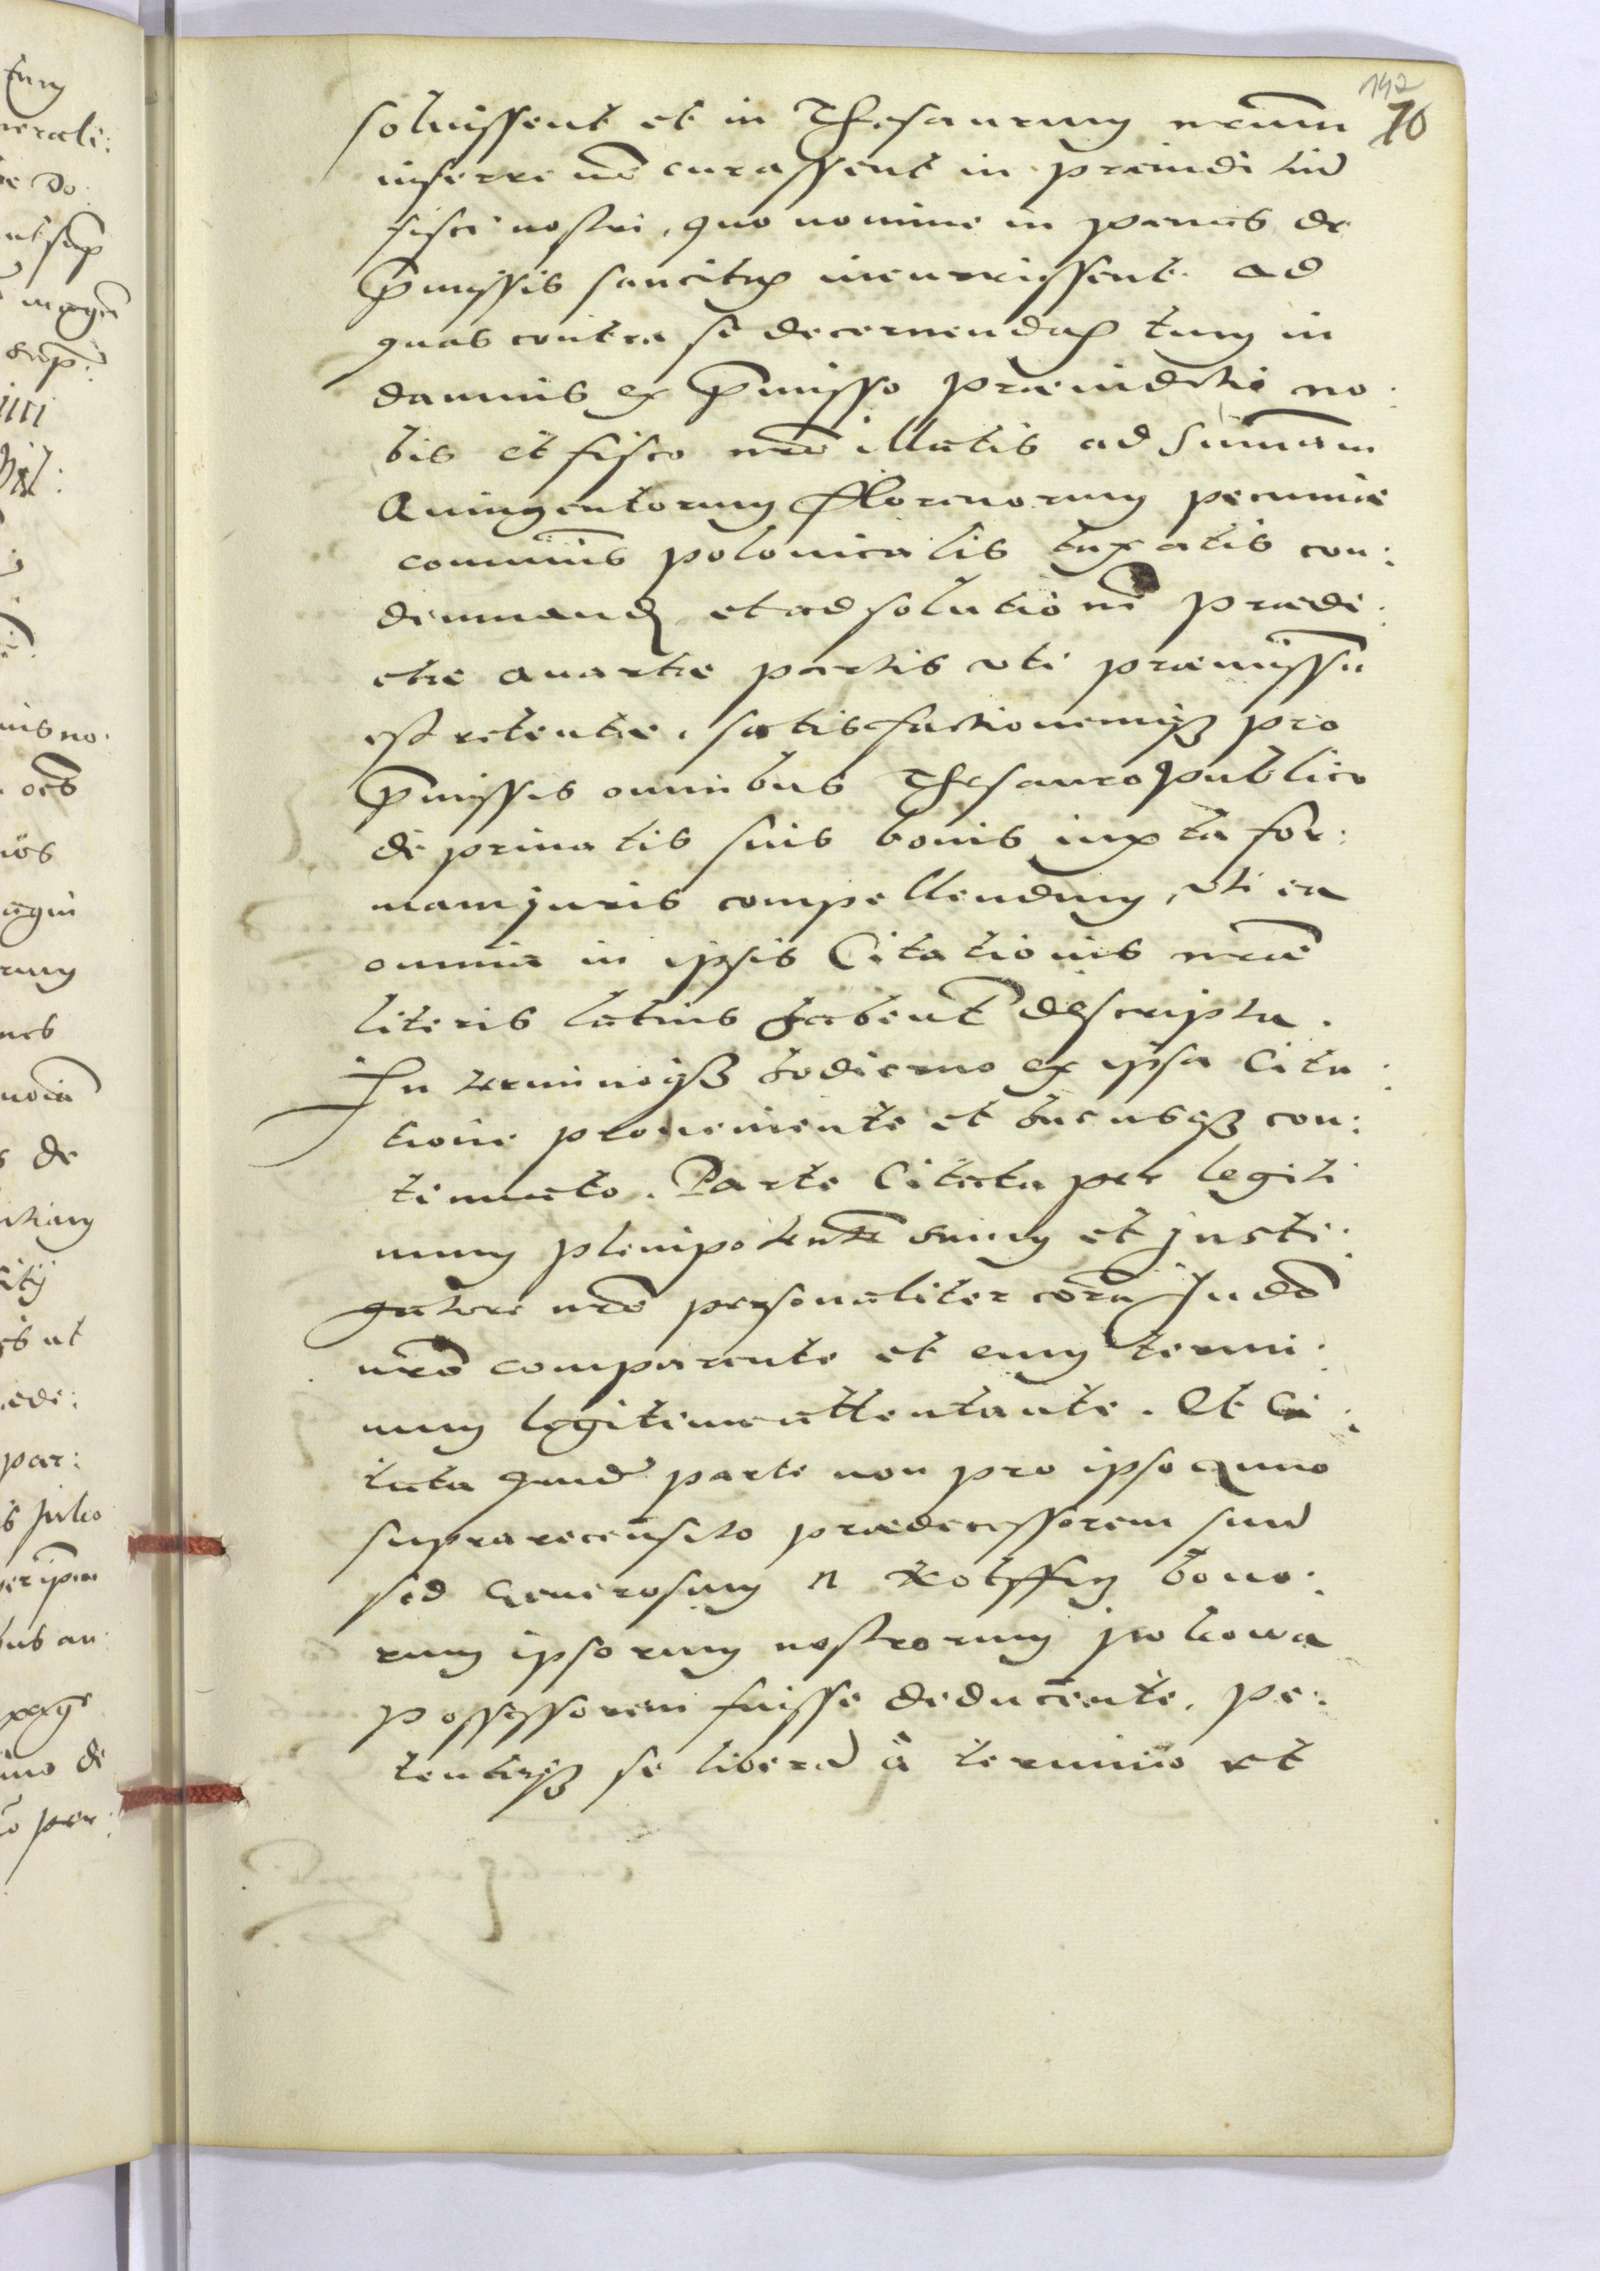 192
70
soluissent et in Thesaurum nrum
inferre nõ curassent in preiudi tiũ
fisci nostri, quo nomine in pœnas de
p̃missis sancitas incurrissent. ad
quas contra se decernendas tum in
damnis ex p̃misso præiuditio no:
bis et fisco nrõ illatis ad Sum̃am
Quingentorum Florenorum pecuniæ
com̃unis polonicalis taxatis con:
demnand et ad solutionẽ prædi:
ctæ quartæ partis vti præmissũ
est retentæ, satisfactionemqȝ pro
p̃missis omnibus Thesauro publico
de priuatis suis bonis iuxta for:
mam juris compellendum, vti ea
omnia in ipsis Citationis nrãe
literis latius habent̃ descripta.
In terminoqȝ hodierno ex ipsa Cita:
tione proueniente et hucusqȝ con:
tinuato. Parte Citata per legiti
mum plenipotentẽ suum et justi:
gatore nrõ personaliter corã Iudõ
nrõ comparente et eum termi:
num legitime attentante. Et Ci:
tata quidẽ parte non pro ipso anno
suprarecensito prædecessorem suũ
sed Generosum N bono:
rum ipsorum nostrorum
possessorem fuisse deducente, pe:
tenteqȝ se liberũ à termino et